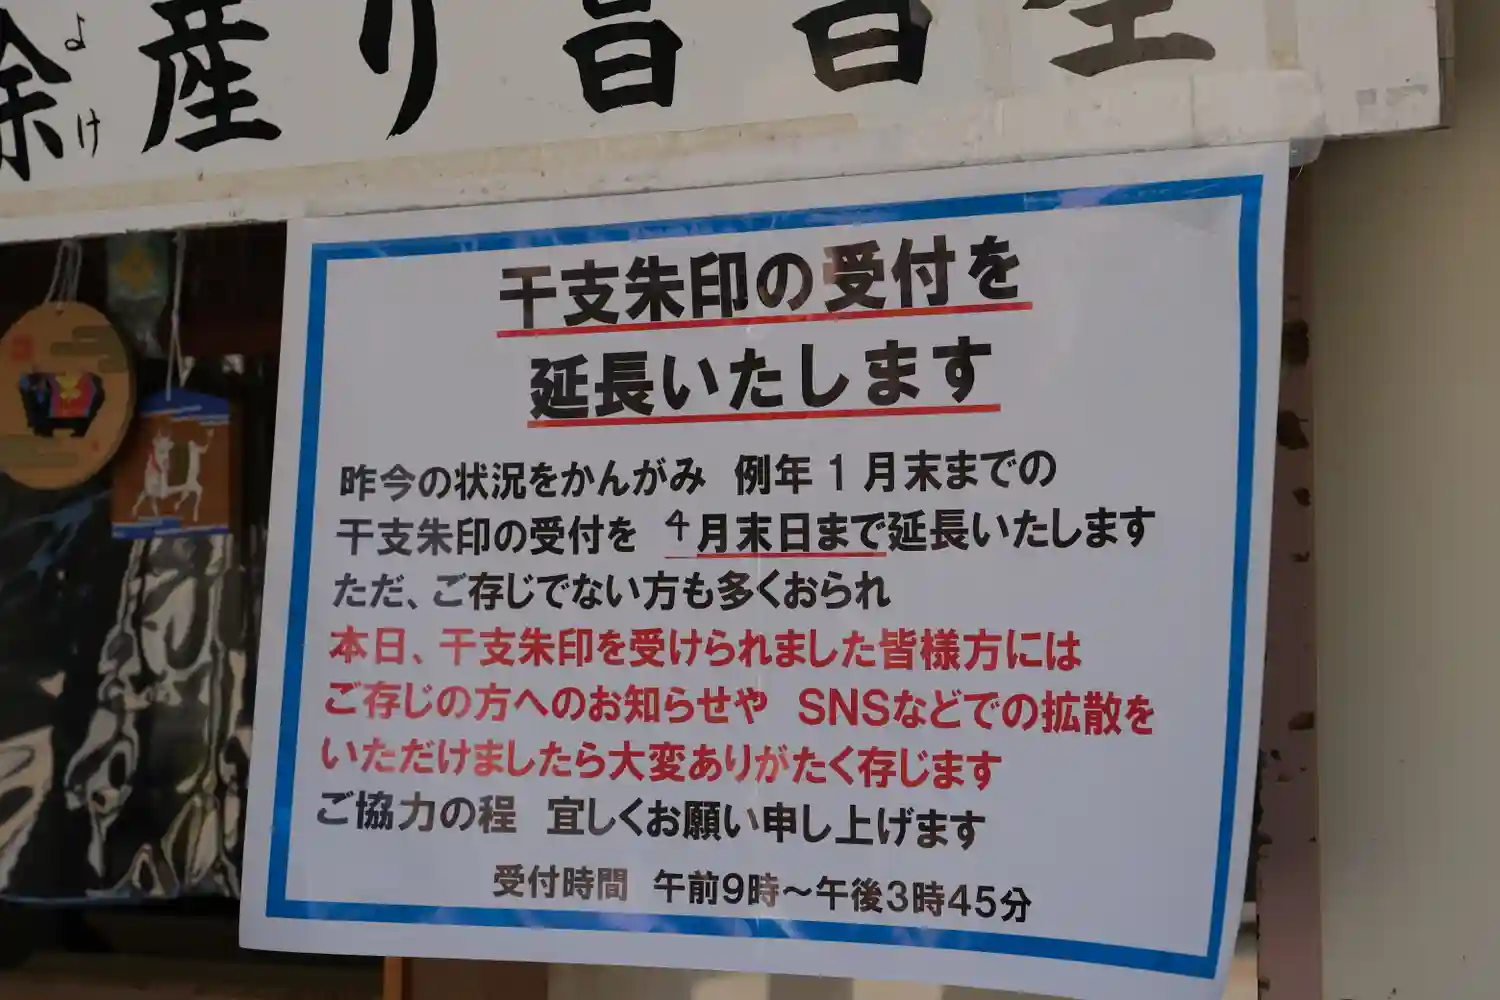 産り
よけ
干支朱印の受付を
延長いたします
昨今の状況をかんがみ 例年1月末までの
干支朱印の受付を 4月末日まで延長いたします
ただ、ご存じでない方も多くおられ
本日、干支朱印を受けられました皆様方には
ご存じの方へのお知らせや SNSなどでの拡散を
いただけましたら大変ありがたく存じます
ご協力の程 宜しくお願い申し上げます
受付時間 午前9時～午後3時45分